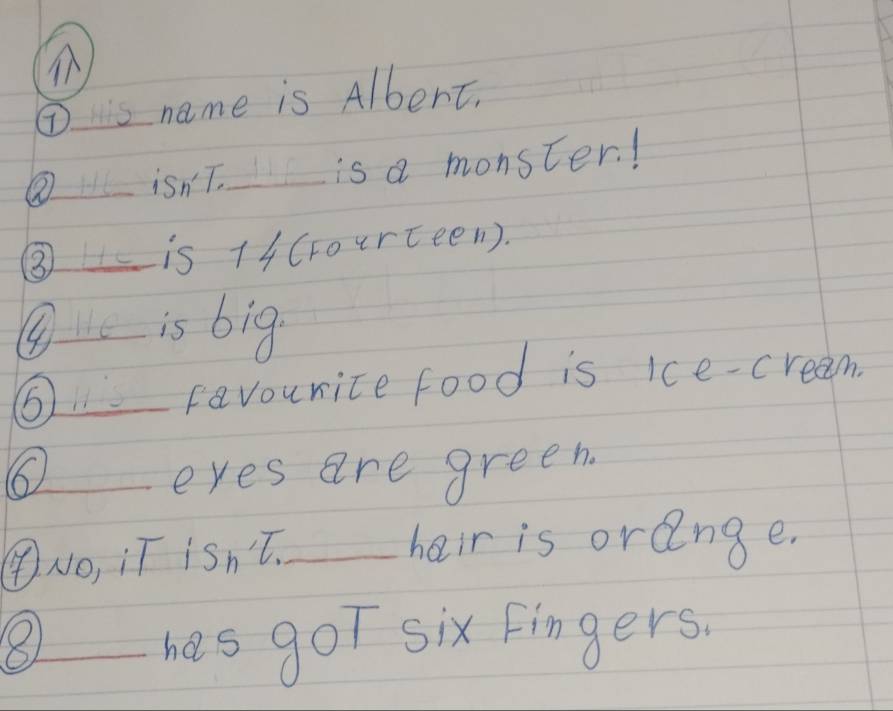 ① His name is Albert.
② He isn't. He is a monster!
③ He is 14 (Fourteen).
④ He is big.
⑤ His Favourite Food is Ice-cream.
⑥ ____ eyes are green.
⑦ No, it isn't. ____ hair is orange.
⑧ ____ has got six Fingers.